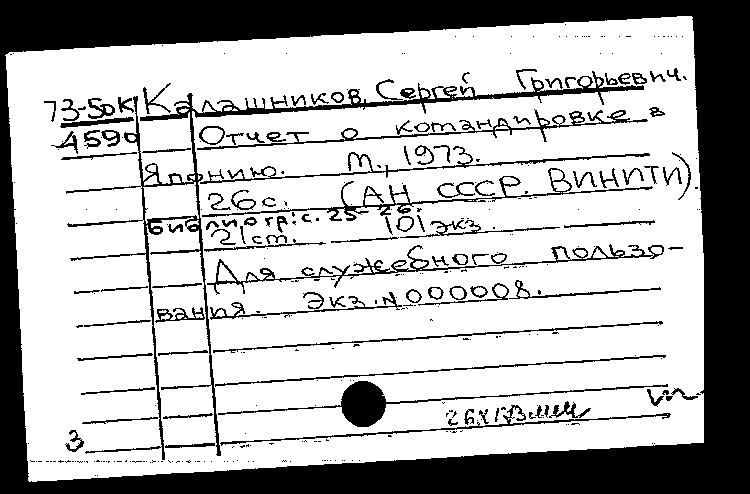 73-50к Калашников, Сергей Григорьевич.
4590 Отчет о командировке в
Японию. М., 1973.
26 с. (АН СССР. ВИНИТИ).
библиогр: с. 25-26.
21 см. 101 экз.
Для служебного пользо-
вания. Экз. N 000008.
3